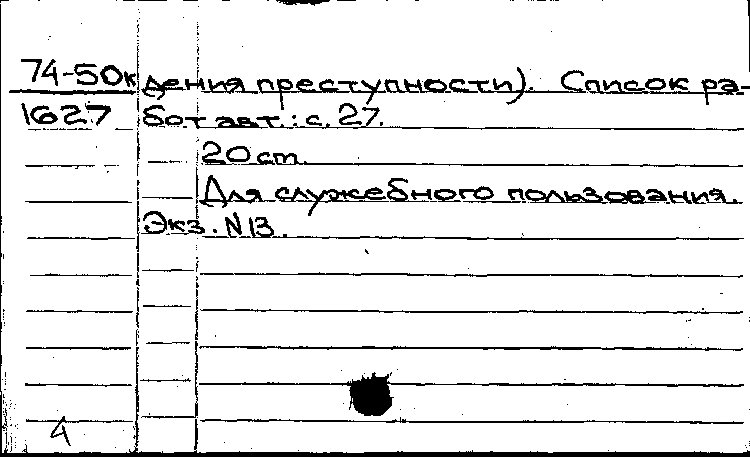 74-50к дения преступности). Список ра-
1627 бот авт.: с. 27.
20 см.
Для служебного пользования.
Экз. N 13.
4